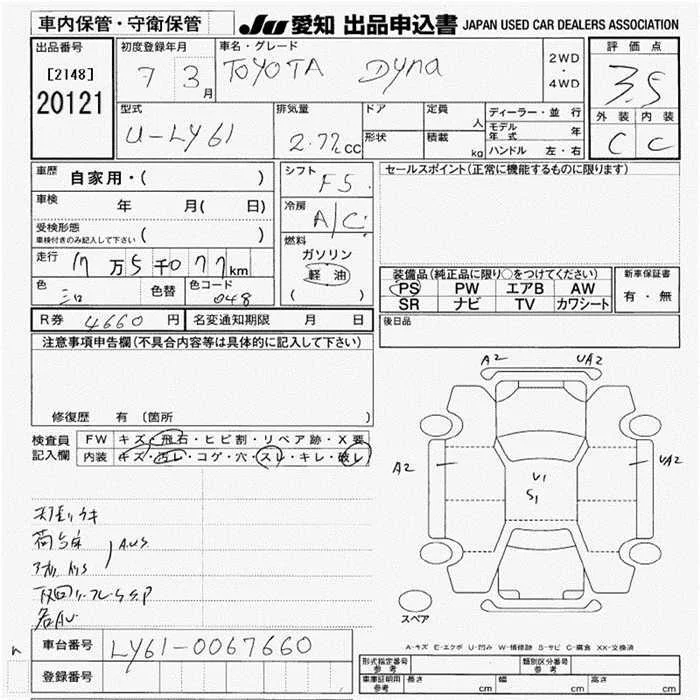 車内保管・守衛保管 JU 愛知 出品申込書 JAPAN USED CAR DEALERS ASSOCIATION
出品番号 初度登録年月 車名・グレード 2WD・4WD 評価点
[2148] 7 3月 TOYOTA Dyna 3.5
20121 外装 内装
C C
型式 排気量 ドア 定員 人 ディーラー・並行
U-LY61 2.77cc 形状 積載 kg モデル年式 年
ハンドル 左・右
車歴 自家用・( ) シフト F5 セールスポイント(正常に機能するものに限ります)
車検 年 月( 日) 冷房 A/C
受検形態 ( )
車検付きのみ記入して下さい
燃料 ガソリン 軽油 ( )
走行 17万5千077km
色 色替 色コード 048
装備品(純正品に限り○をつけてください) 新車保証書
PS PW エアB AW 有・無
SR ナビ TV カワシート
R券 4660円 名変通知期限 月 日 後日品
注意事項申告欄(不具合内容等は具体的に記入して下さい)
修復歴 有 〔箇所 〕
検査員記入欄 FW キズ・飛石・ヒビ割・リペア跡・X要
内装 キズ・汚レ・コゲ・穴・スレ・キレ・破レ
A2 UA2
A2 UA2
U1
S1
スペア
A-キズ E-エクボ U-凹み W-補修跡 S-サビ C-腐食 XX-交換済
車台番号 LY61-0067660
登録番号
形式指定番号 参考 類別区分番号 参考
車庫証明用 参考 長さ cm 幅 cm 高さ cm